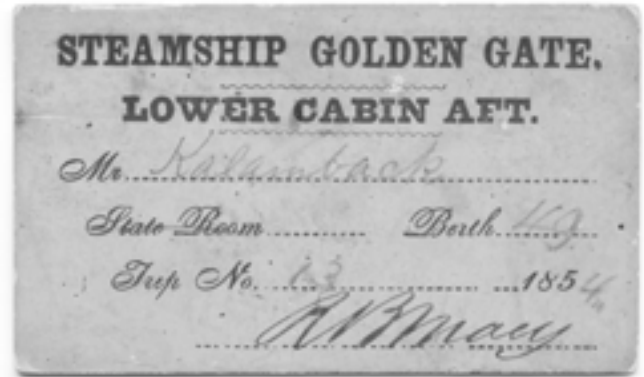 STEAMSHIP GOLDEN GATE,
LOWER CABIN AFT.
Mr. Kalamback
State Room Berth 49
Trip No. 13 1854